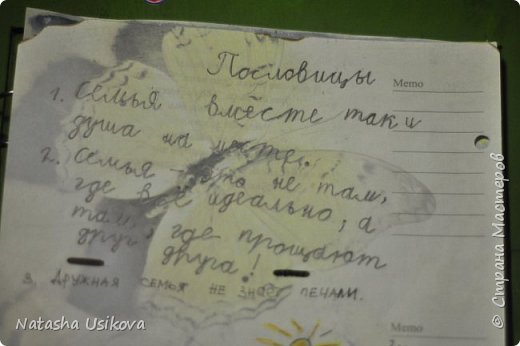 Пословицы
Memo
1. Семья вместе так и
душа на месте.
2. Семья - это не там,
где всё идеально, а
там, где прощают
друг друга!
3. Дружная семья не знает печали.
Memo
Natasha Usikova
© Страна Мастеров